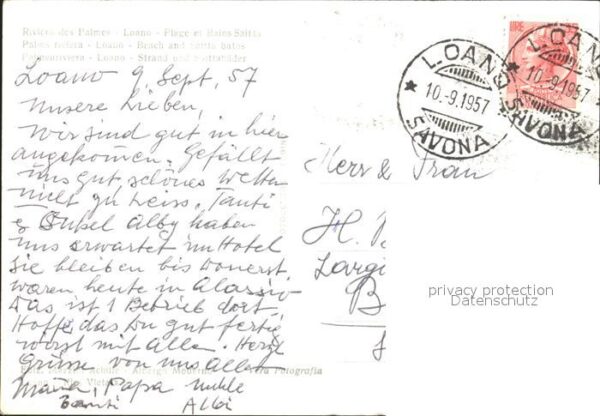 Riviera des Palmes - Loano - Plage et Bains
Palms riviera - Loano - Beach and baths
Palmenriviera - Loano - Strand und
Loano 9 Sept, 57
Unsere Lieben,
Wir sind gut in hier
angekomen. Gefällt
uns gut schönes Wetter
nicht zu heiss. Tanti
& Onkel Alby haben
uns erwartet im Hotel
sie bleiben bis Donerst.
waren heute in Alassio
Das ist 1 Betrieb dort
Hoffe das Du gut fertig
wirst mit Allem. Herzl
Grüsse von uns Allen
Mama, Papa
Tanti Albi
Fotografia
LOANO
10.-9.1957
SAVONA
LIRE
LOANO
10.-9.1957
SAVONA
Herr & Frau
H.
privacy protection
Datenschutz